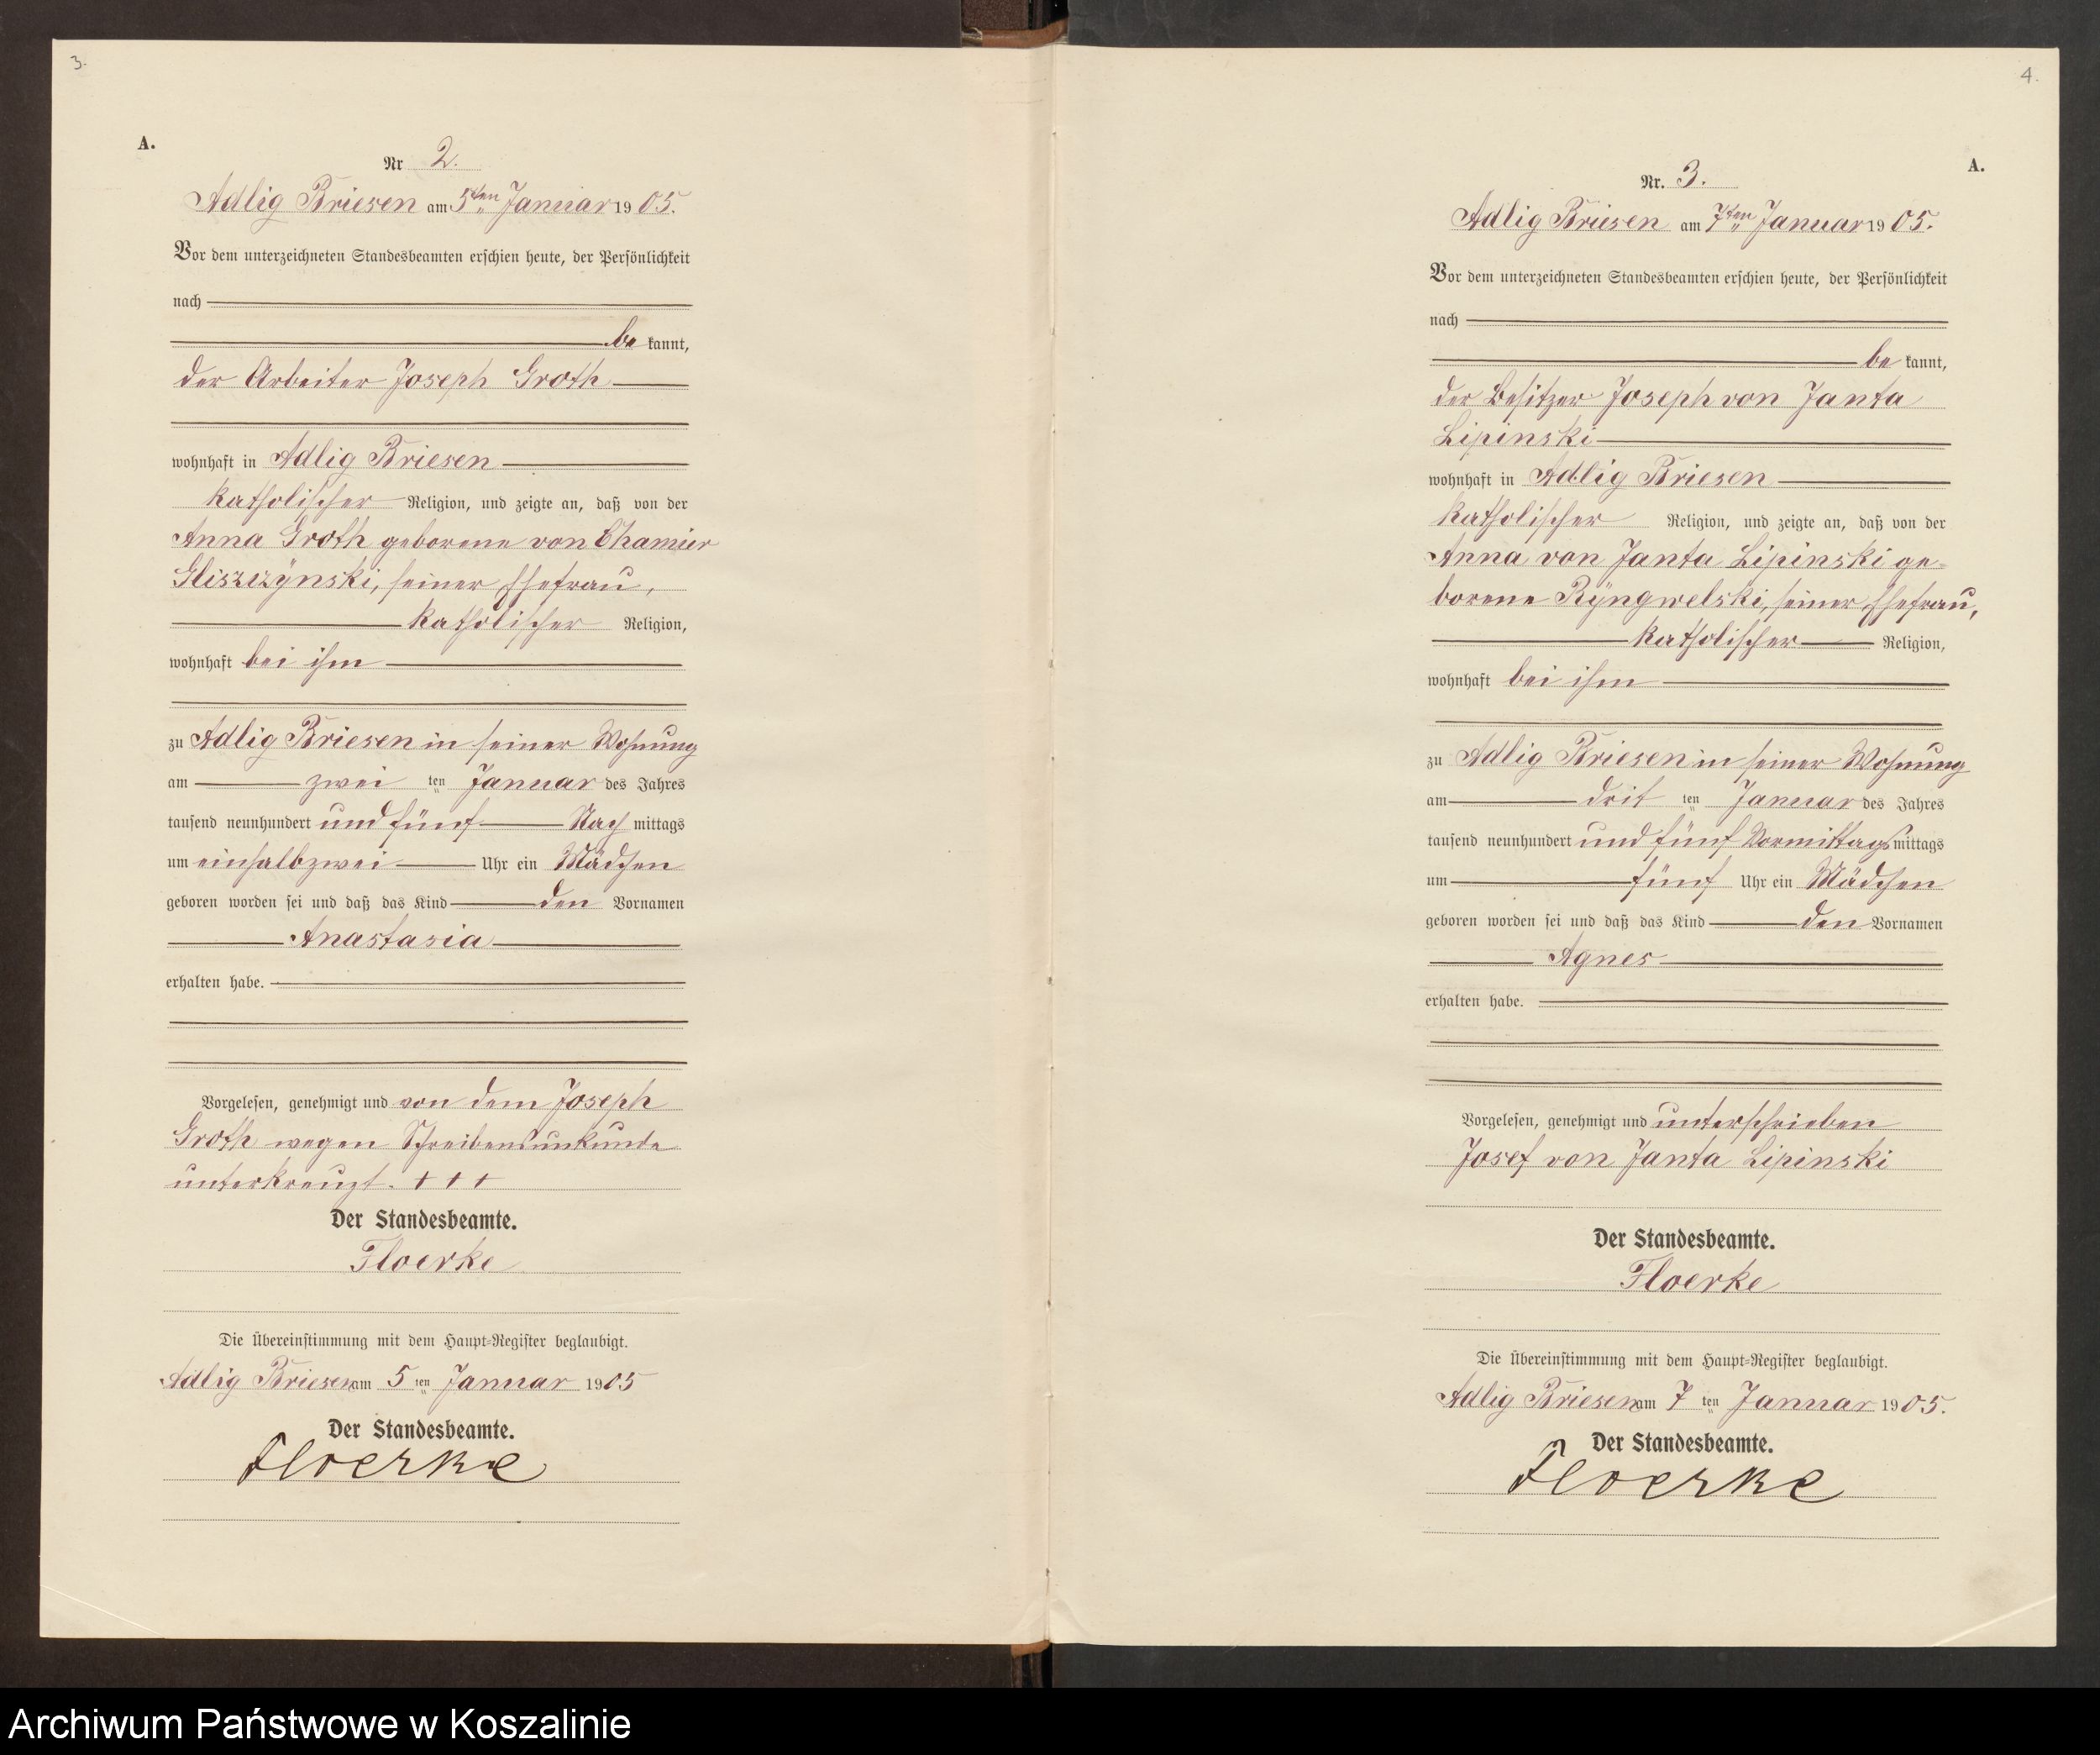 3.
A.
Nr 2.
Adlig Briesen am 5ten Januar 1905.
Vor dem unterzeichneten Standesbeamten erschien heute, der Persönlichkeit
nach
be kannt,
der Arbeiter Joseph Groth
wohnhaft in Adlig Briesen
katholischer Religion, und zeigte an, daß von der
Anna Groth geborene von Chamier
Gliszczynski, seiner Ehefrau,
katholischer Religion,
wohnhaft bei ihm
zu Adlig Briesen in seiner Wohnung
am zwei ten Januar des Jahres
tausend neunhundert und fünf Nach mittags
um einhalbzwei Uhr ein Mädchen
geboren worden sei und daß das Kind den Vornamen
Anastasia
erhalten habe.
Vorgelesen, genehmigt und von dem Joseph
Groth wegen Schreibensunkunde
unterkreuzt. + + +
Der Standesbeamte.
Floerke
Die Übereinstimmung mit dem Haupt-Register beglaubigt.
Adlig Briesen am 5 ten Januar 1905
Der Standesbeamte.
Floerke
4.
A.
Nr. 3.
Adlig Briesen am 7ten Januar 1905.
Vor dem unterzeichneten Standesbeamten erschien heute, der Persönlichkeit
nach
be kannt,
der Besitzer Joseph von Janta
Lipinski
wohnhaft in Adlig Briesen
katholischer Religion, und zeigte an, daß von der
Anna von Janta Lipinski ge-
borene Ryngwelski, seiner Ehefrau,
katholischer Religion,
wohnhaft bei ihm
zu Adlig Briesen in seiner Wohnung
am drit ten Januar des Jahres
tausend neunhundert und fünf Vormittags mittags
um fünf Uhr ein Mädchen
geboren worden sei und daß das Kind den Vornamen
Agnes
erhalten habe.
Vorgelesen, genehmigt und unterschrieben
Josef von Janta Lipinski
Der Standesbeamte.
Floerke
Die Übereinstimmung mit dem Haupt-Register beglaubigt.
Adlig Briesen am 7 ten Januar 1905.
Der Standesbeamte.
Floerke
Archiwum Państwowe w Koszalinie